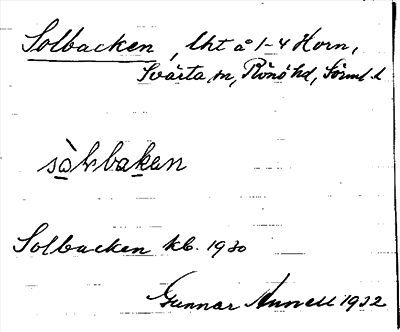 Solbacken, lht å 1-4 Horn,
Svärta sn, Rönö hd, Sörml. l.
sòlbakan
Solbacken kb. 1930
Gunnar Annell 1932